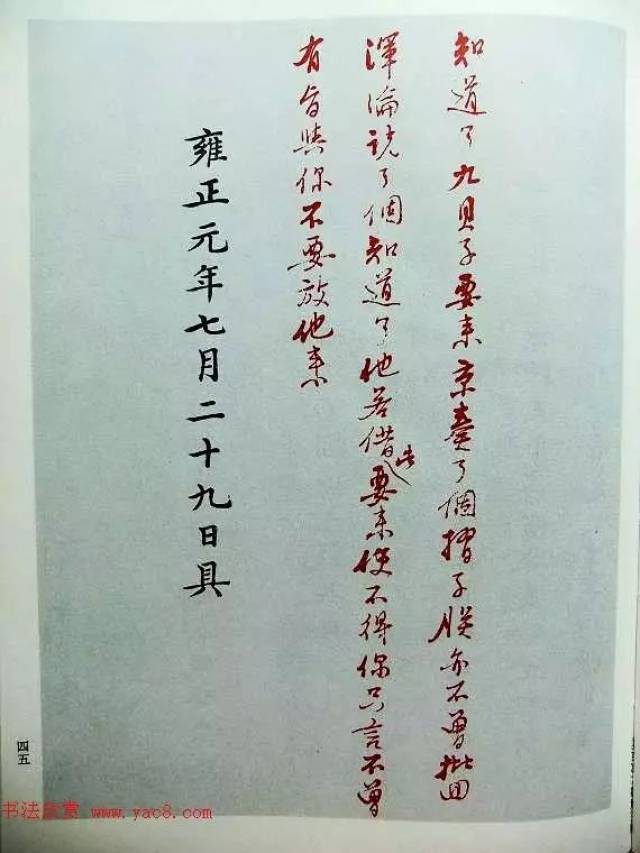 知道了九貝子要来京奏了個摺子朕亦不曾批回
渾淪說了個知道了他若借此要来使不得你只言不曾
有旨與你不要放他来
雍正元年七月二十九日具
四五
书法欣赏 www.yac8.com